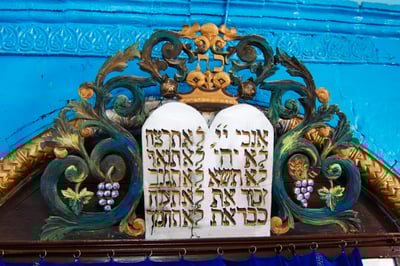 כ ת
אנכי יי
לא יה'
לא תשא
זכור את
כבד את
לא תרצח
לא תנאף
לא תגנב
לא תענה
לא תחמד